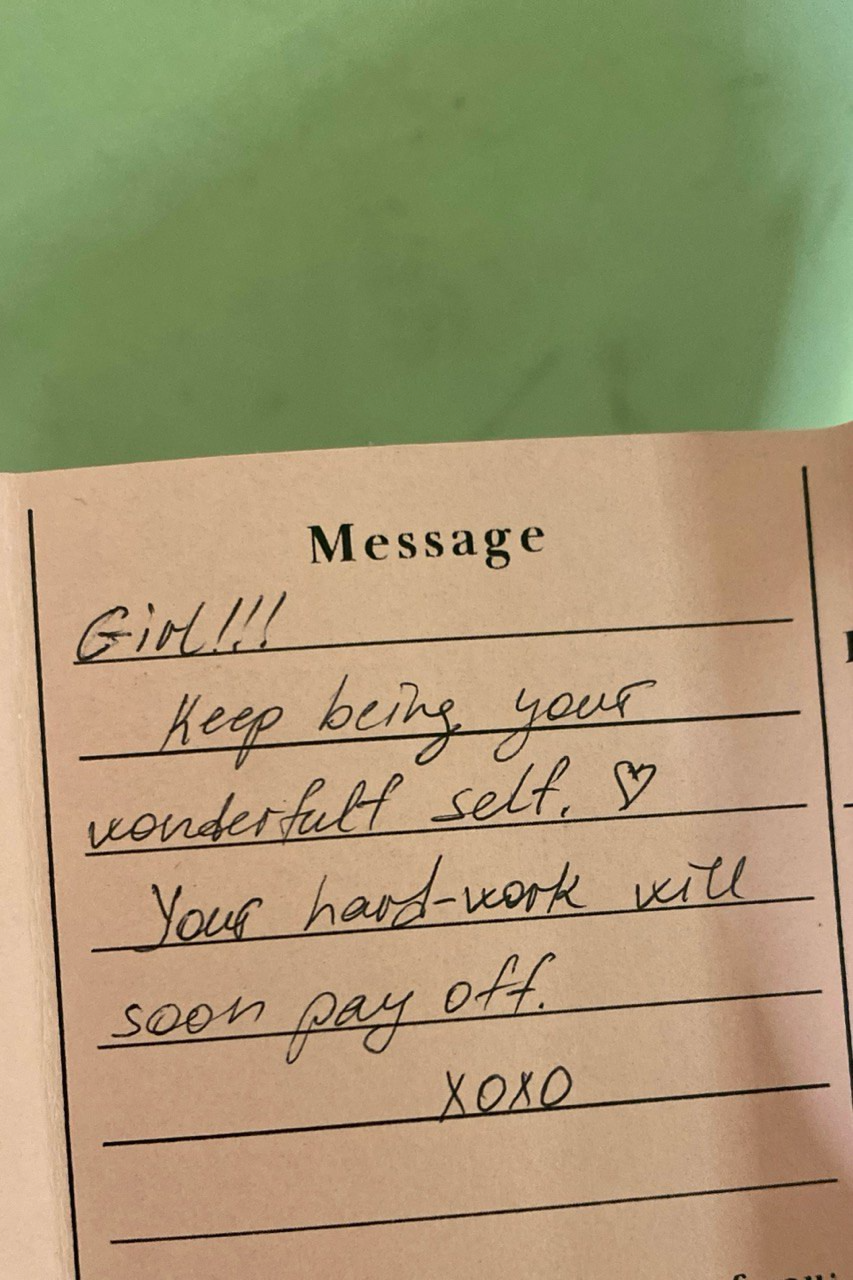 Message
Girl!!!
Keep being your
wonderfull self. ♡
Your hard-work will
soon pay off.
XOXO